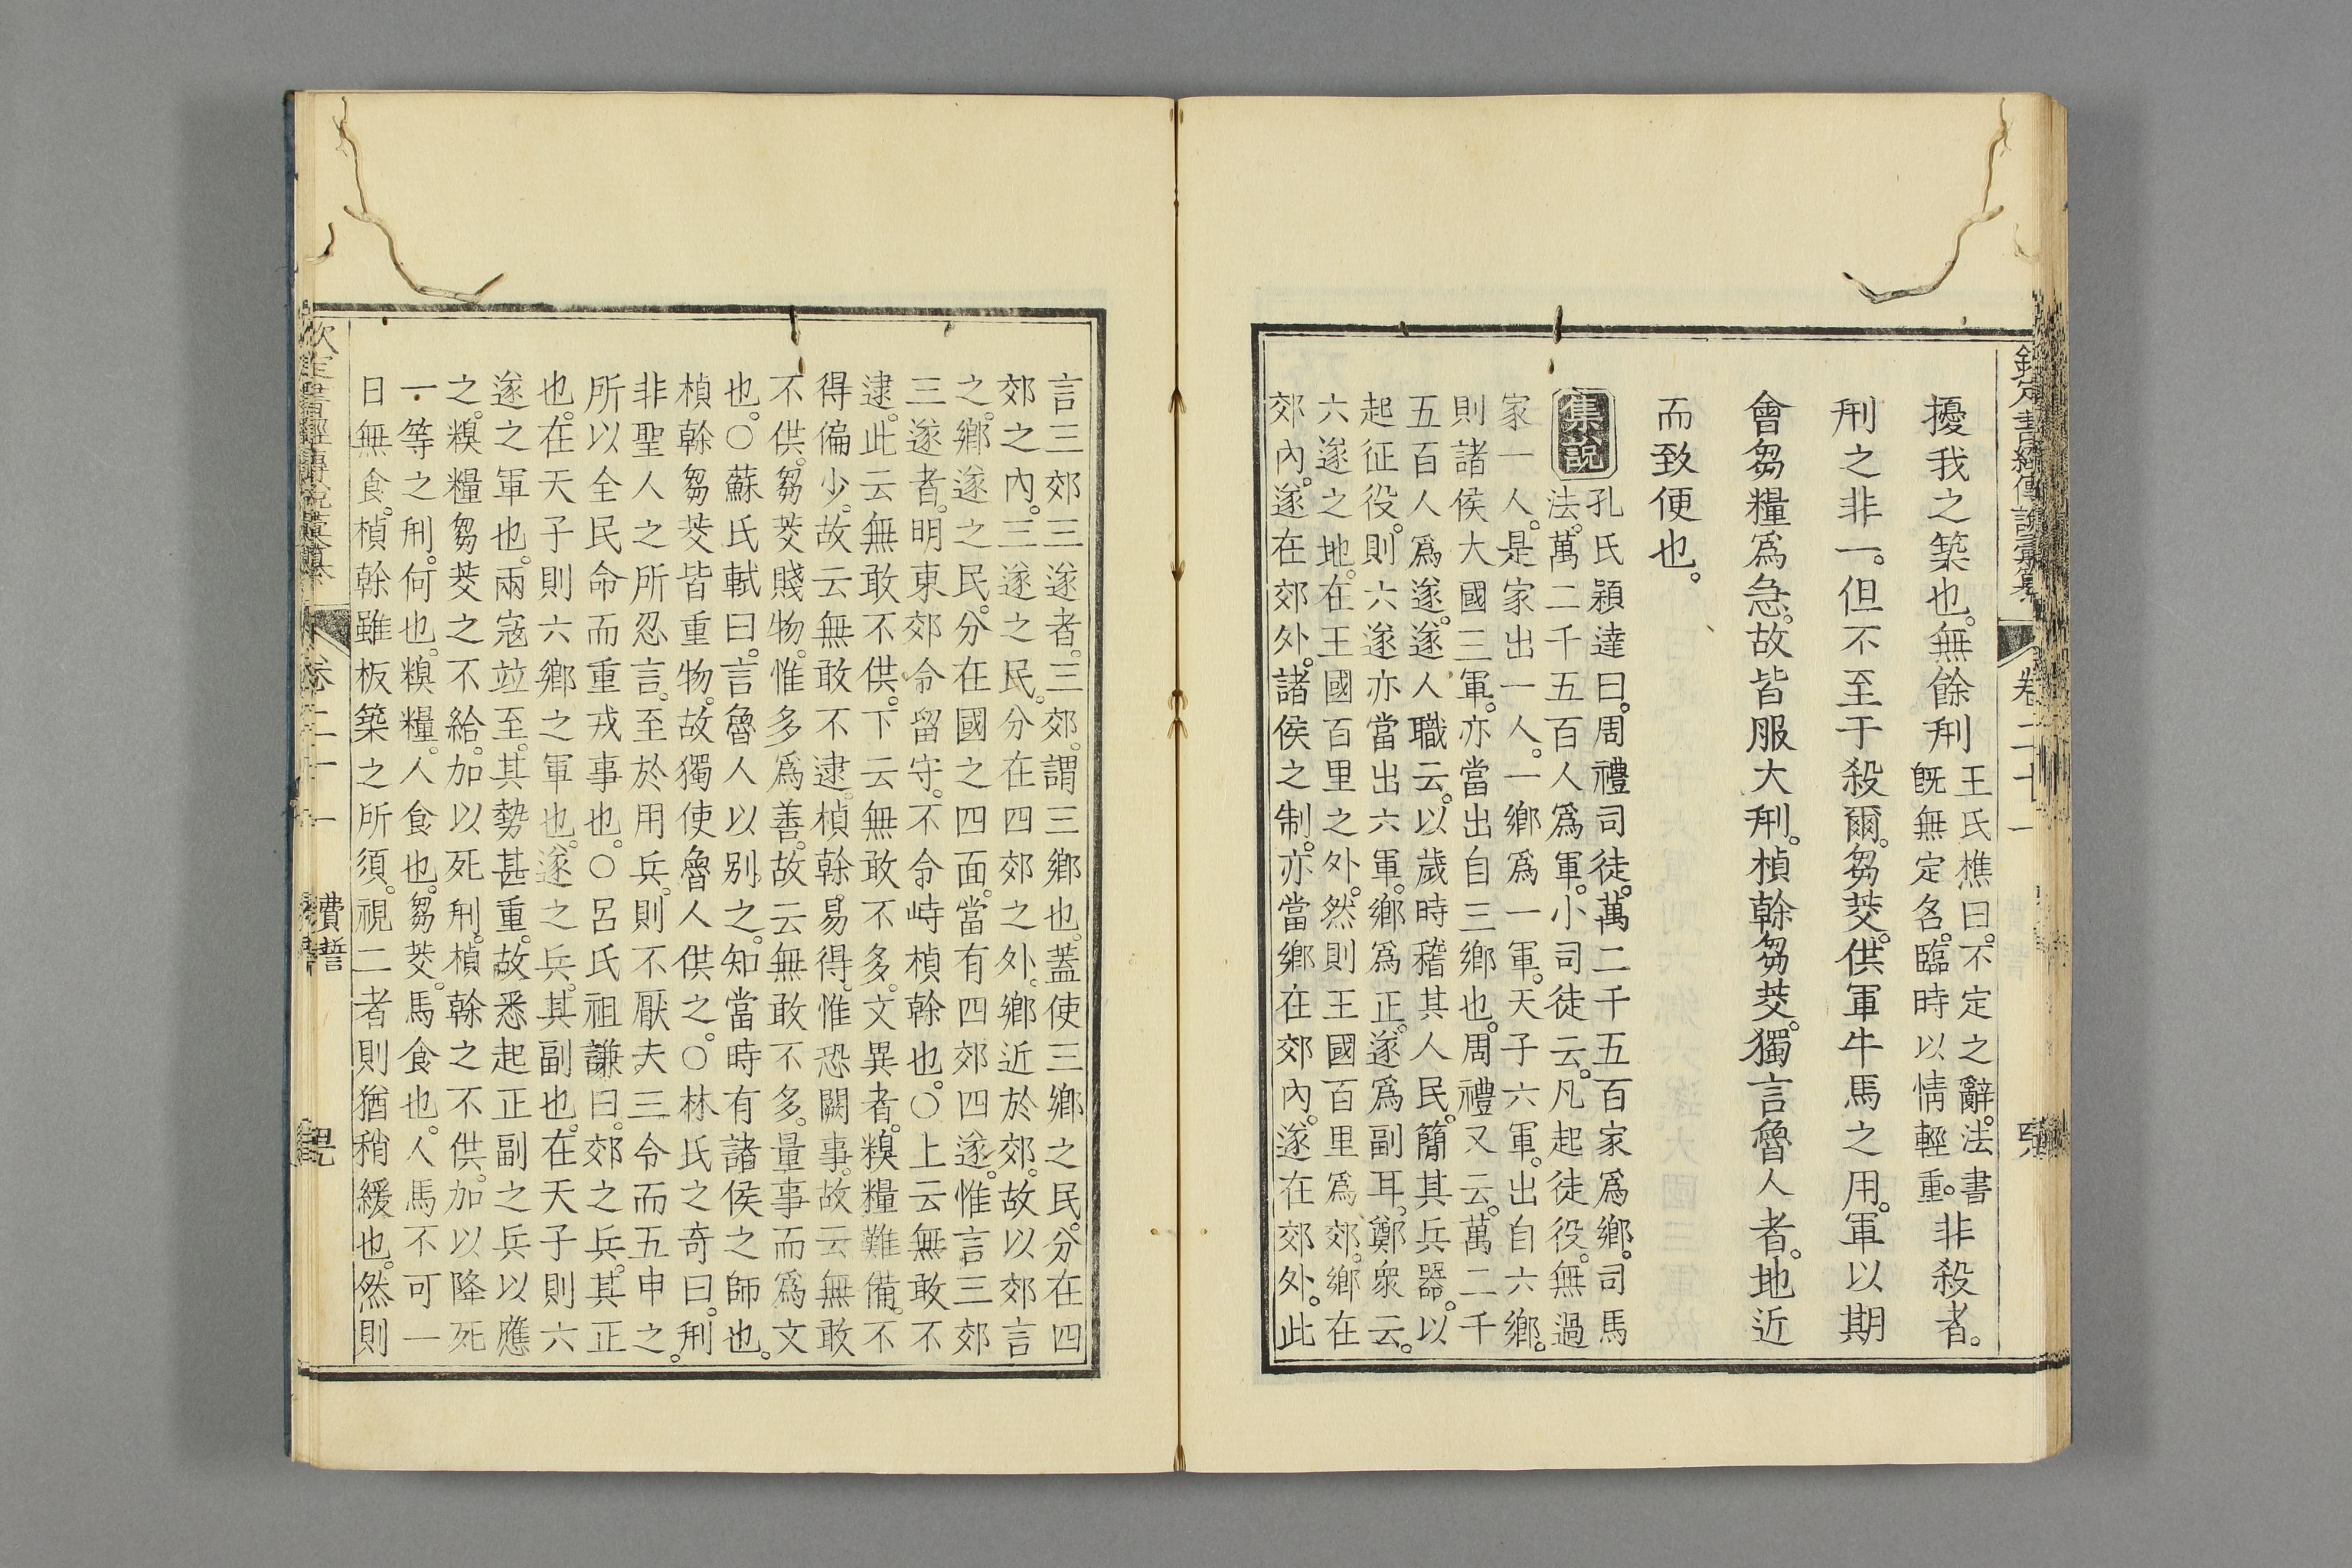 欽定書經傳說彙纂 卷二十一
擾我之築也。無餘刑王氏樵曰。不定之辭。法書
旣無定名。臨時以情輕重。非殺者。
刑之非一。但不至于殺爾。芻茭。供軍牛馬之用。軍以期
會芻糧爲急。故皆服大刑。楨榦芻茭。獨言魯人者。地近
而致便也。
集說
孔氏穎達曰。周禮司徒。萬二千五百家爲鄉。司馬
法。萬二千五百人爲軍。小司徒云。凡起徒役。無過
家一人。是家出一人。一鄉爲一軍。天子六軍。出自六鄉。
則諸侯大國三軍。亦當出自三鄉也。周禮又云。萬二千
五百人爲遂。遂人職云。以歲時稽其人民。簡其兵器。以
起征役。則六遂亦當出六軍。鄉爲正。遂爲副耳。鄭衆云。
六遂之地。在王國百里之外。然則王國百里爲郊。鄉在
郊內。遂在郊外。諸侯之制。亦當鄉在郊內。遂在郊外。此
言三郊三遂者。三郊。謂三鄉也。蓋使三鄉之民。分在四
郊之內。三遂之民。分在四郊之外。鄉近於郊。故以郊言
之。鄉遂之民。分在國之四面。當有四郊四遂。惟言三郊
三遂者。明東郊令留守。不令峙楨榦也。○上云無敢不
逮。此云無敢不供。下云無敢不多。文異者。糗糧難備。不
得偏少。故云無敢不逮。楨榦易得。惟恐闕事。故云無敢
不供。芻茭賤物。惟多爲善。故云無敢不多。量事而爲文
也。○蘇氏軾曰。言魯人以别之。知當時有諸侯之師也。
楨榦芻茭皆重物。故獨使魯人供之。○林氏之奇曰。刑
非聖人之所忍言。至於用兵。則不厭夫三令而五申之。
所以全民命而重戎事也。○呂氏祖謙曰。郊之兵。其正
也。在天子則六鄉之軍也。遂之兵。其副也。在天子則六
遂之軍也。兩寇竝至。其勢甚重。故悉起正副之兵以應
之。糗糧芻茭之不給。加以死刑。楨榦之不供。加以降死
一等之刑。何也。糗糧。人食也。芻茭。馬食也。人馬不可一
日無食。楨榦雖板築之所須。視二者則猶稍緩也。然則
卷二十一 費誓